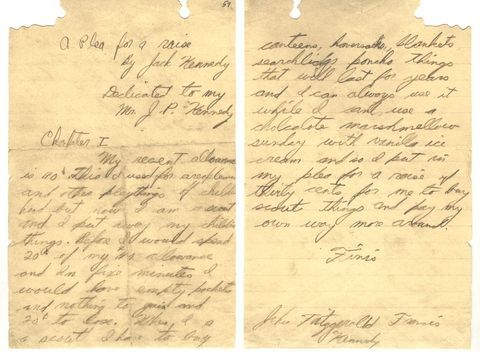 A Plea for a raise
by Jack Kennedy
Dedicated to my
Mr. J. P. Kennedy
Chapter I
My recent allowance
is 40¢ This I used for areoplanes
and other playthings of childhood
but now I am a scout
and I put away my childish
things. Before I would spend
20¢ of my allowance
and In five minutes I
would have empty pockets
and nothing to gain and
20¢ to lose. When I a
a scout I have to buy
canteens, haversacks, blankets
searchlidgs poncho things
that will last for years
and I can always use it
while I cant use a
cholcalote marshmellow
sunday with vanilla ice
cream and so I put in
my plea for a raise of
thirty cents for me to buy
scout things and pay my
own way more around.
Finis
John Fitzgerald Francis
Kennedy